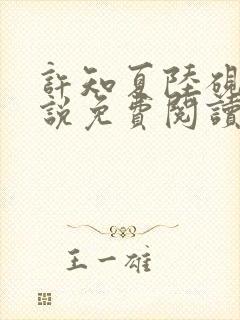 許知夏陸硯
說免費閱讀
王一雄